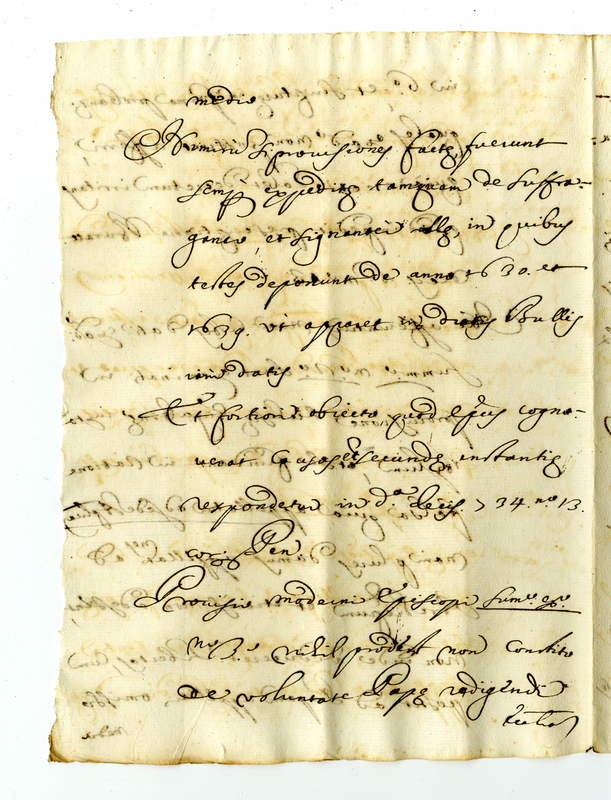 medio
Numiru & provisiones factę, fuerunt
semp expeditę tamquam de suffra-
ganeo, et signanter illę, in quibus
testes deponunt de anno 1630. et
1639. ut apparet in dictis Bullis
iam datis
Et fortiori obiecto quod Epus cogno-
verat Causas Et secundę instantię
respondetur in d.ª decis. 734. n.º 13.
cor: Pen
Provisio moderni Episcopi Sum.
n.º 3.º nihil prodest non constito
de voluntate Papę redigendi